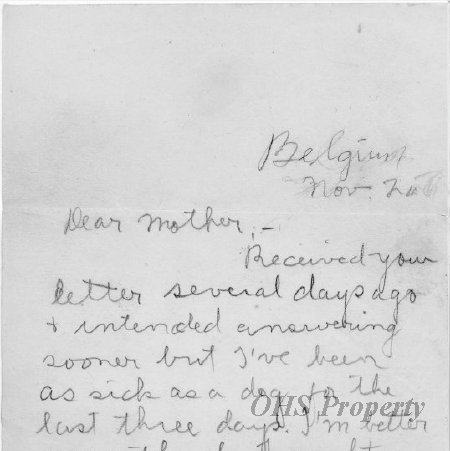 Belgium
Nov. 20
Dear Mother,-
Received your
letter several days ago
& intended answering
sooner but I've been
as sick as a dog fo the
last three days. I'm better
OHS Property